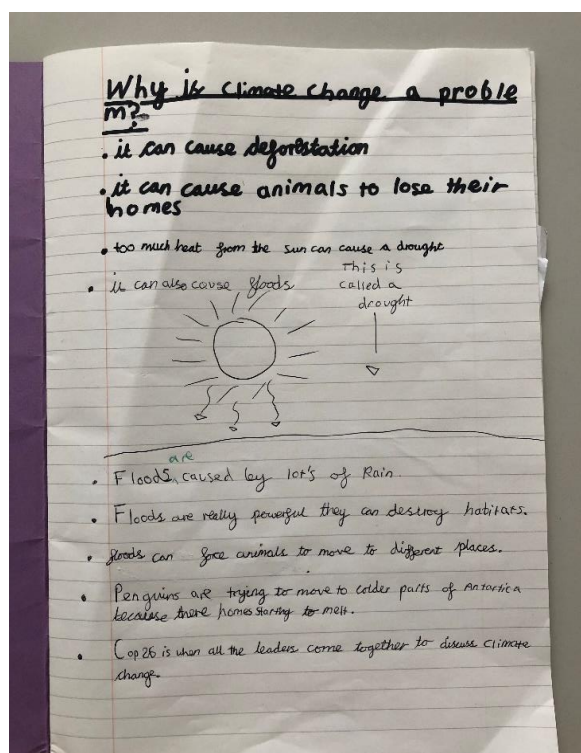 Why is climate change a proble
m?
• it can cause deforestation
• it can cause animals to lose their
homes
• too much heat from the sun can cause a drought
• it can also cause floods
This is
called a
drought
are
• Floods caused by lot's of Rain.
• Floods are really powerful they can destroy habitats.
• floods can force animals to move to different places.
• Penguins are trying to move to colder parts of Antartica
because there homes starting to melt.
• Cop 26 is when all the leaders come together to discuss climate
change.